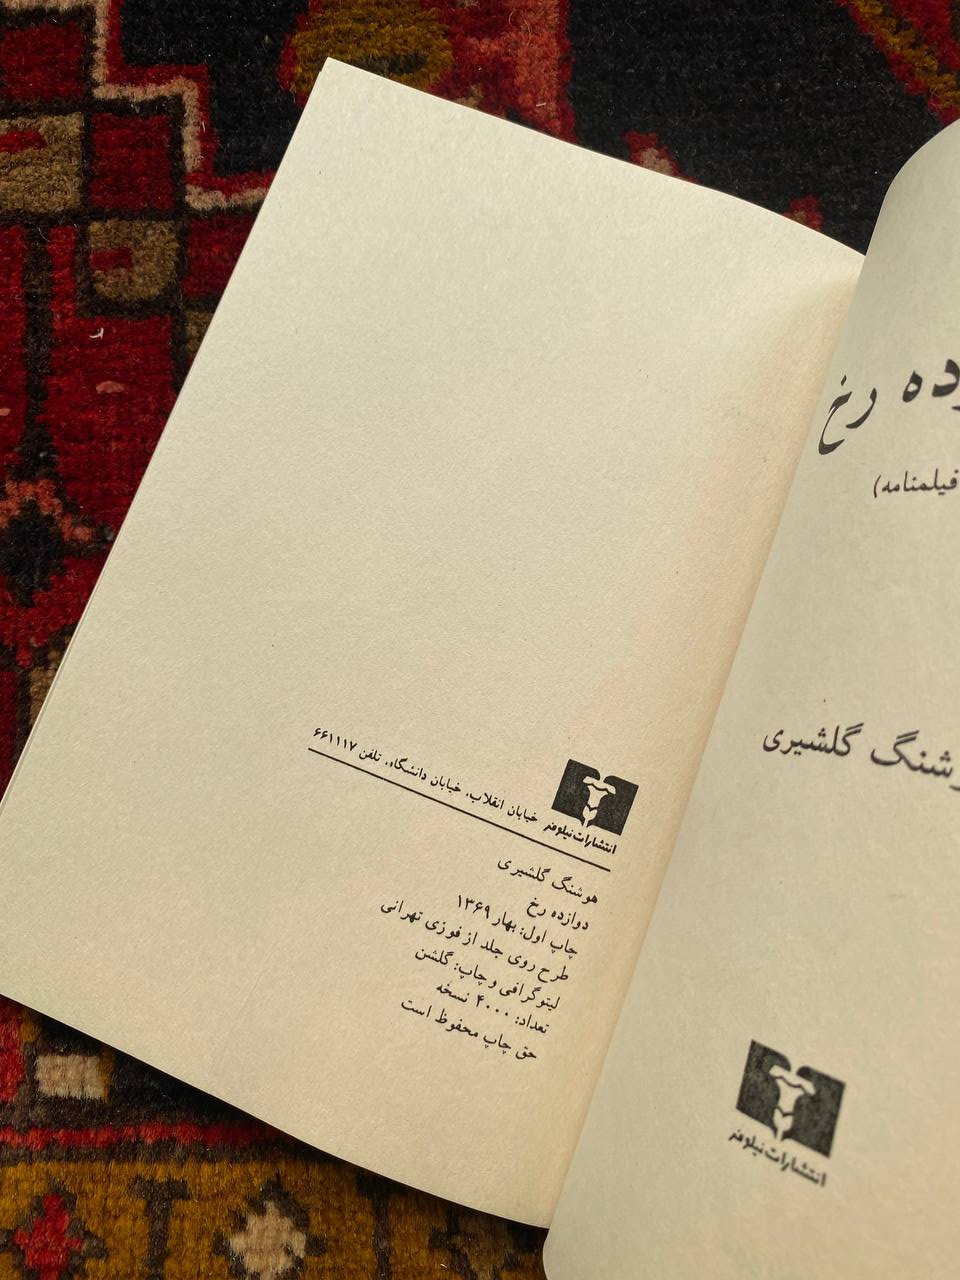 رخ
فیلمنامه)
گلشیری
انتشارات نیلوفر
انتشارات نیلوفر خیابان انقلاب، خیابان دانشگاه، تلفن ۶۶۱۱۱۷
هوشنگ گلشیری
دوازده رخ
چاپ اول: بهار ۱۳۶۹
طرح روی جلد از فوزی تهرانی
لیتوگرافی و چاپ: گلشن
تعداد: ۴۰۰۰ نسخه
حق چاپ محفوظ است